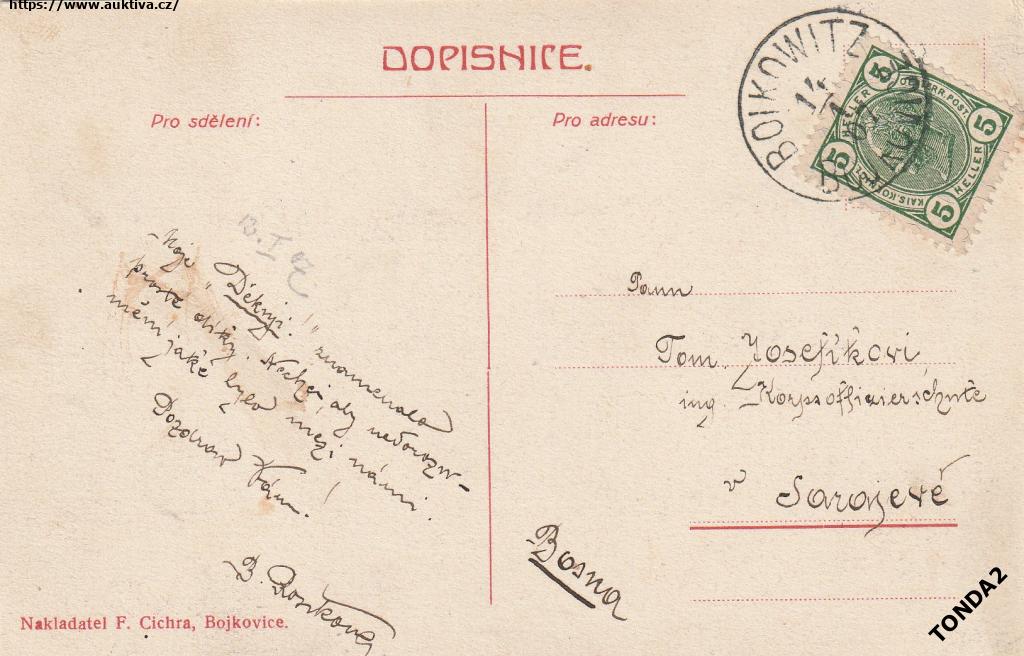 https://www.auktiva.cz/
DOPISNICE.
Pro sdělení:
Pro adresu:
BOJKOWITZ
14
5 HELLER 5
13. I 07
Moje "Děkuji!" znamenalo
prostě díky. Nechci, aby nedorozu-
mění jaké bylo mezi námi.
Pozdrav Vám!
B.
Panu
Tom. Josefíkovi
ing. Korpsoffizierschule
v Sarajevě
Bosna
Nakladatel F. Cichra, Bojkovice.
TONDA2